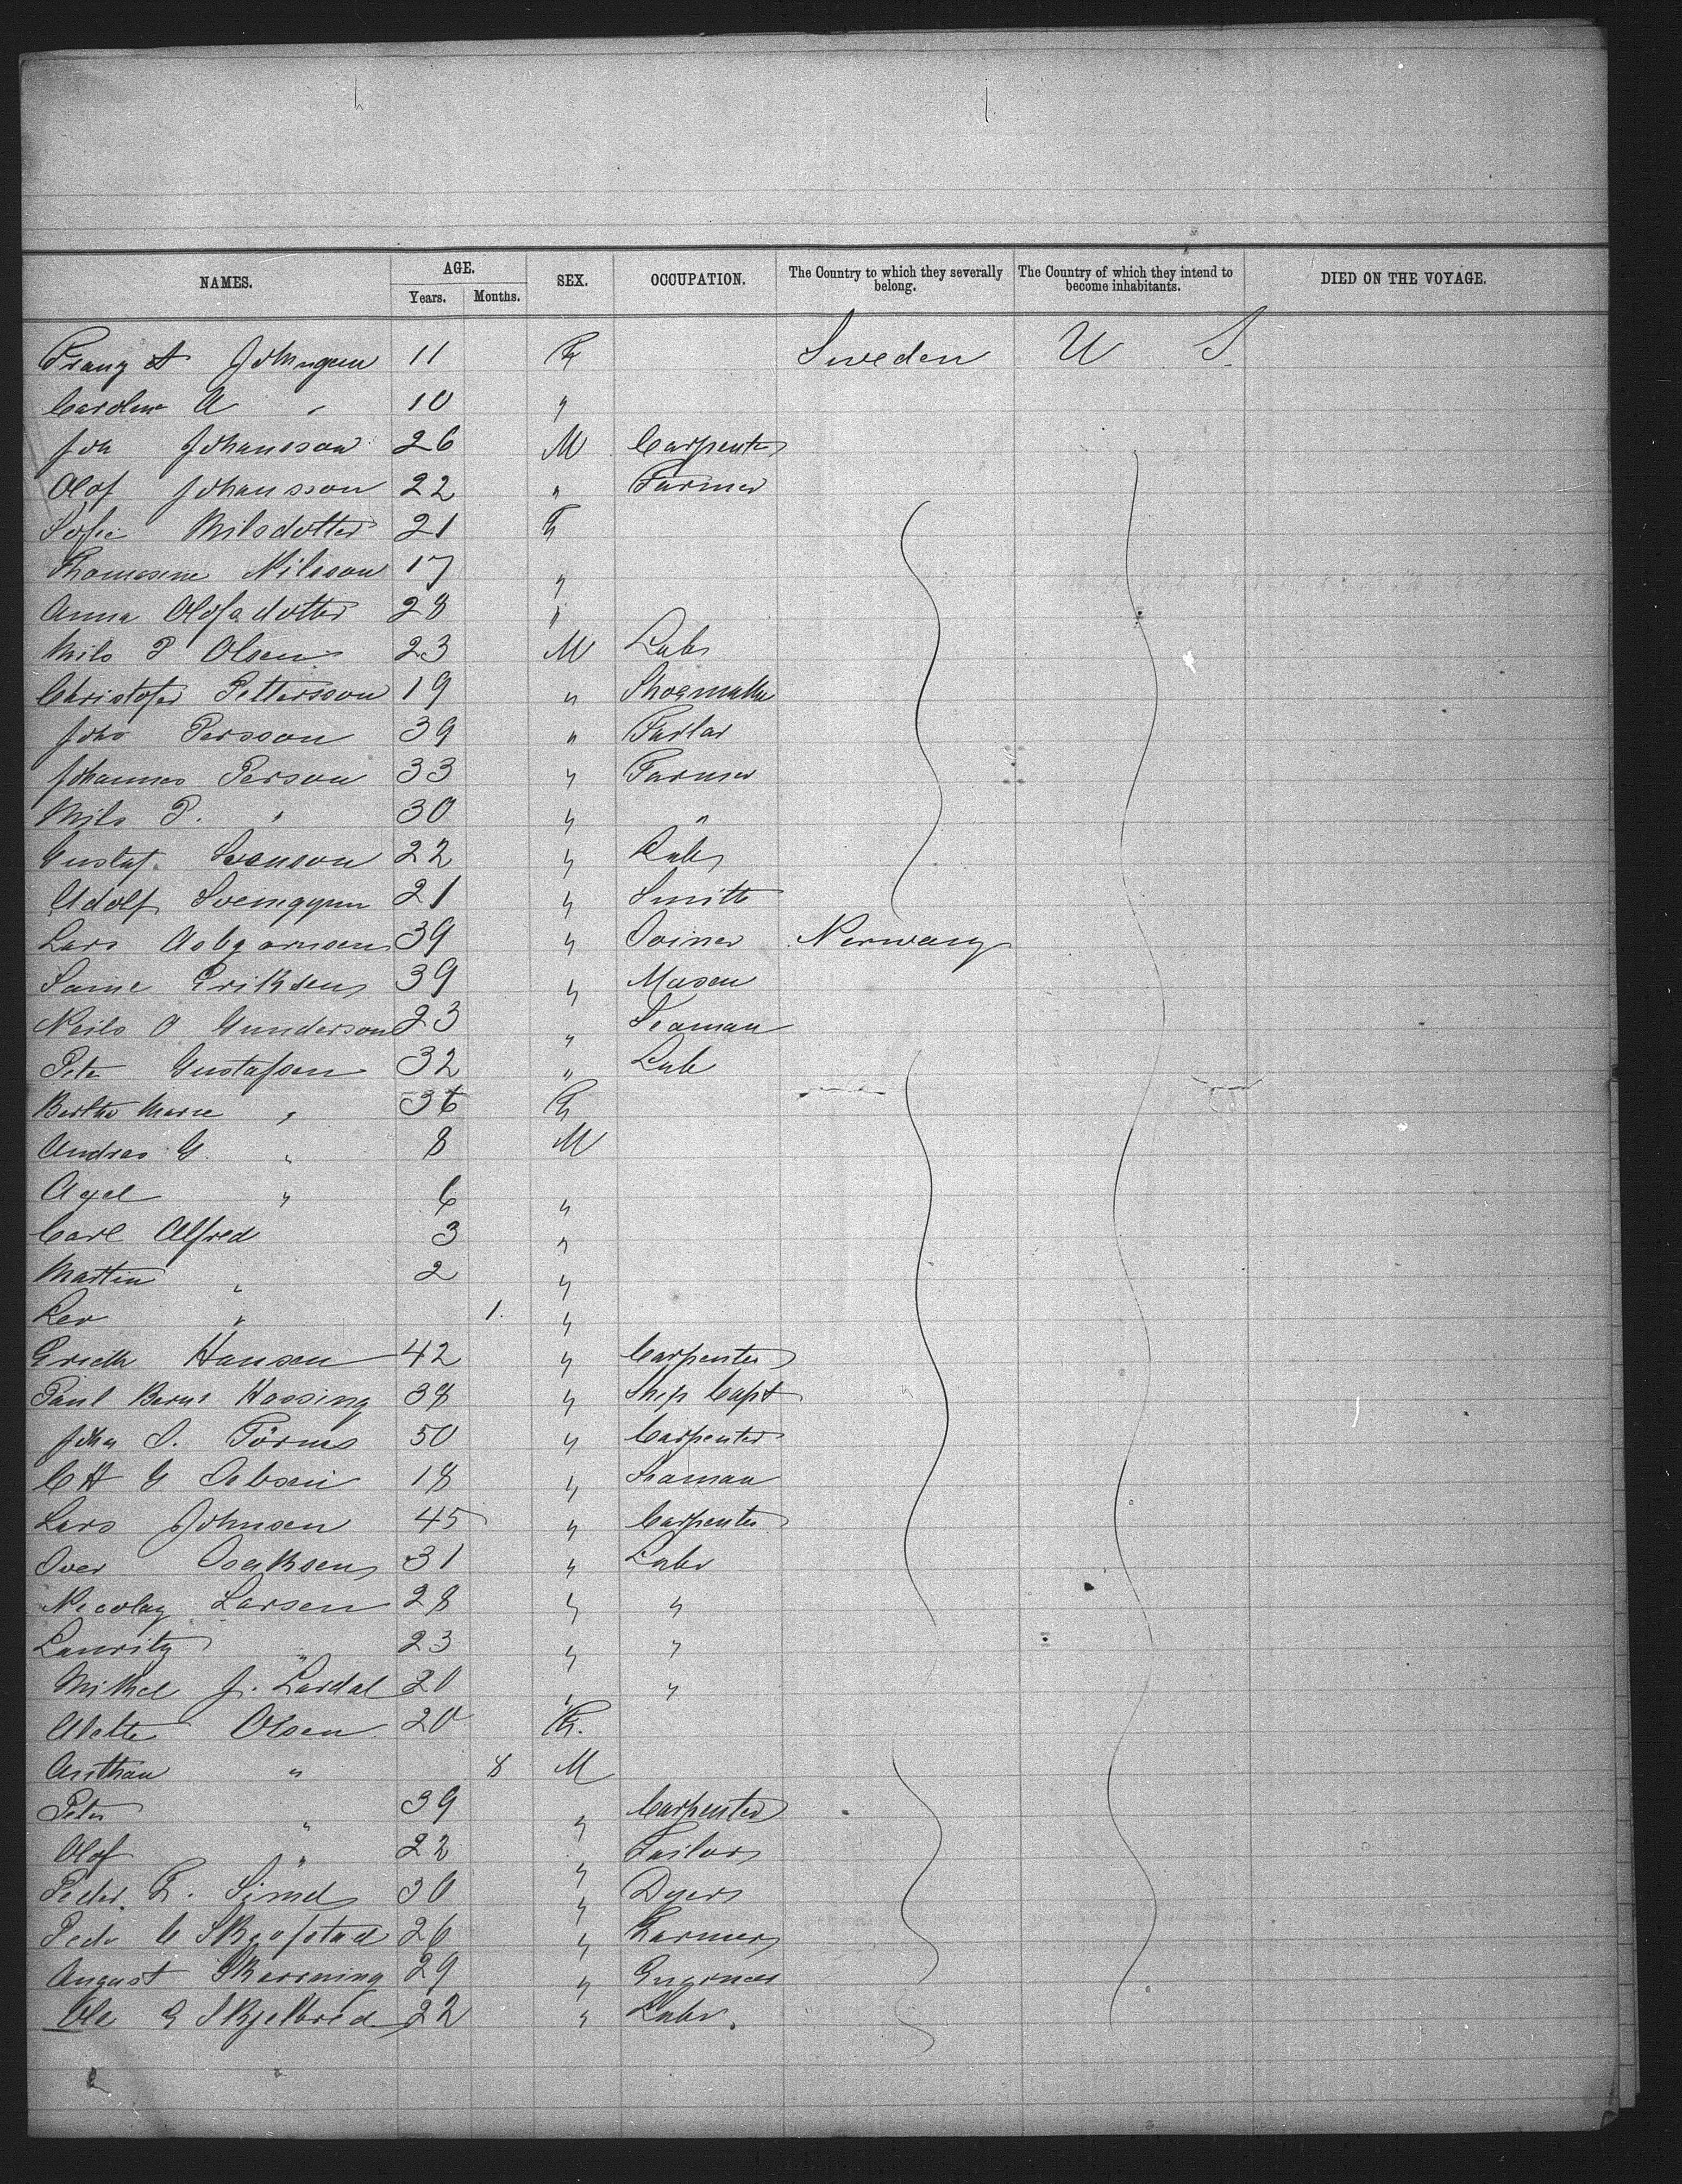 NAMES. AGE. Years. Months. SEX. OCCUPATION. The Country to which they severally belong. The Country of which they intend to become inhabitants. DIED ON THE VOYAGE.
Franz A 11 F Sweden U S.
Carolina A " 10 "
Joh Johansson 26 M Carpenter
Olof Johansson 22 " Farmer
Sofie Nilsdotter 21 F
Thomasine Nilsson 17 "
Anna Olofsdotter 28 "
Nils P Olsen 23 M Labr
Christofer Pettersson 19 " Shoemaker
Joho Persson 39 "
Johannes Person 33 " Farmer
Nils P. " 30 " "
Gustaf Svenson 22 " Labr
Adolf 21 " Smith
Lars Asbjornsen 39 " Joiner Norway
Eriksen 39 " Mason
Neils O Gunderson 23 " Seaman
Peter Gustafsen 32 " Lab
Berthe Marie " 36 F
Andres G. " 8 M
Axel " 6 "
Carl Alfred 3 "
Martin " 2 "
" 1. "
Hansen 42 " Carpenter
Paul Bernt Hassing 38 " Ship Capt
John O. 50 " Carpenter
C H G 18 " Seaman
Lars Johnsen 45 " Carpenter
Iver Isaksen 31 " Labr
Nicolay Larsen 28 " "
Lauritz " 23 " "
Mikkel J. Lardal 20 " "
Olsen 20 F.
" 8 M
Peter " 39 " Carpenter
Olof " 22 " Tailor
Peder F. 30 " Dyer
Pedr C 26 " Farmer
August 29 " Engineer
Ole G Skjelbred 22 " Labr.